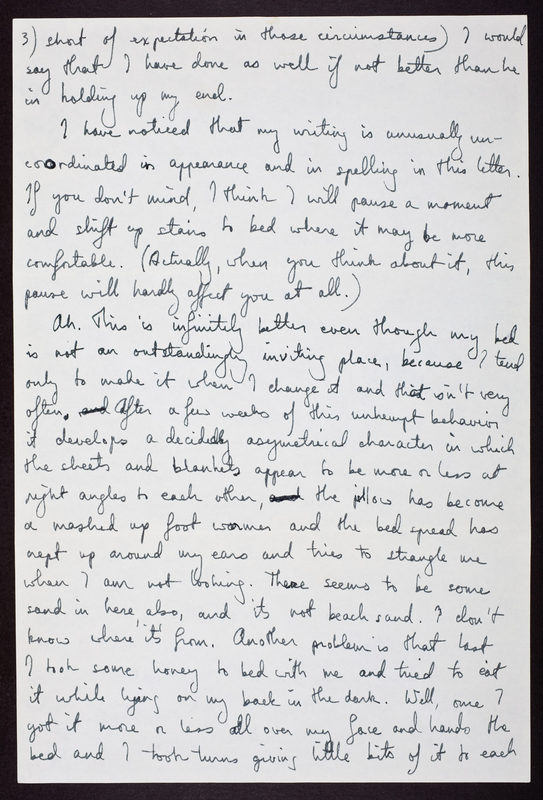 3) short of expectation in those circumstances) I would
say that I have done as well if not better than he
in holding up my end.
I have noticed that my writing is unusually un-
coordinated in appearance and in spelling in this letter.
If you don't mind, I think I will pause a moment
and shift up stairs to bed where it may be more
comfortable. (Actually, when you think about it, this
pause will hardly affect you at all.)
Ah. This is infinitely better even though my bed
is not an outstandingly inviting place, because I tend
only to make it when I change it and that isn't very
often. and After a few weeks of this unkempt behavior
it develops a decidedly asymetrical character in which
the sheets and blankets appear to be more or less at
right angles to each other, and the pillow has become
a mashed up foot warmer and the bed spread has
crept up around my ears and tries to strangle me
when I am not looking. There seems to be some
sand in here, also, and it's not beach sand. I don't
know where it's from. Another problem is that last
I took some honey to bed with me and tried to eat
it while lying on my back in the dark. Well, once I
got it more or less all over my face and hands the
bed and I took turns giving little bits of it to each